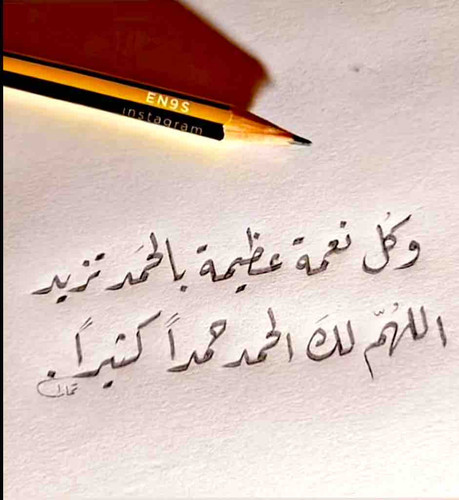 EN9S
instagram
وكُل نعمة عظيمة بالحَمد تزيد
اللهُمّ لكَ الحمد حمداً كثيراً.